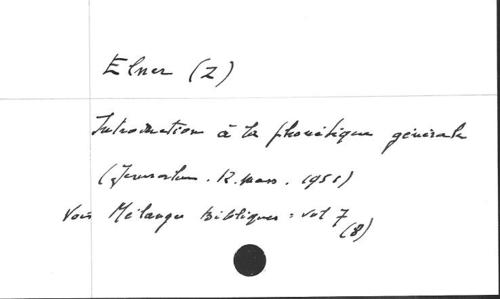 Elner (Z)
Introduction à la phonétique générale
(Jerusalem. R. Mass. 1951)
Voir Mélanges Bibliques : vol 7
(8)